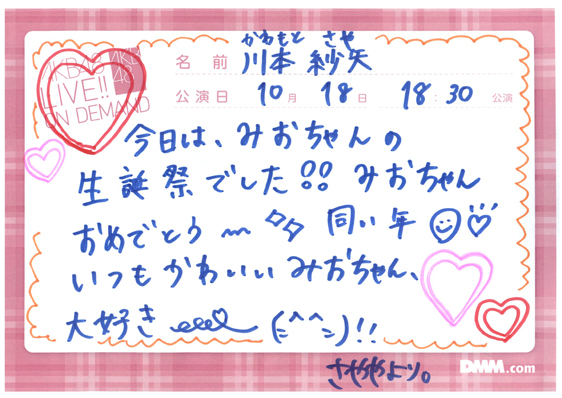 AKB48
LIVE!!
ON DEMAND
AKB
48
かわもと さや
名前 川本 紗矢
公演日 10月 18日 18:30 公演
今日は、みおちゃんの
生誕祭でした!! みおちゃん
おめでとう〜 同い年
いつもかわいいみおちゃん、
大好き (=^^=)!!
さややより。
DMM.com